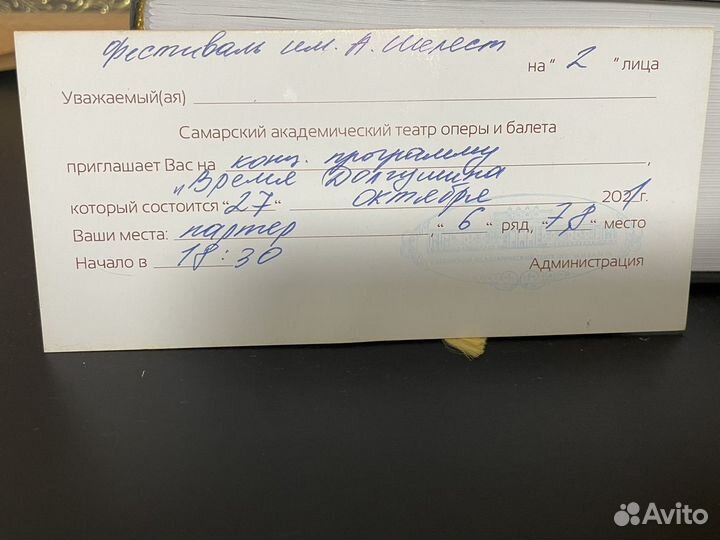 Фестиваль им. А. Шелест
на "2" лица
Уважаемый(ая)
Самарский академический театр оперы и балета
приглашает Вас на конц. программу,
"Время Долгушина
который состоится "27" октября 2021г.
Ваши места: партер, "6" ряд, "7,8" место
Начало в 18:30
Администрация
Avito